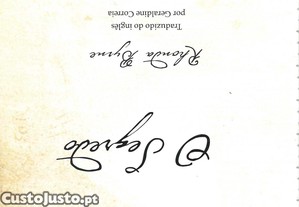 O Segredo
Rhonda Byrne
Traduzido do inglês
por Geraldine Correia
CustoJusto.pt